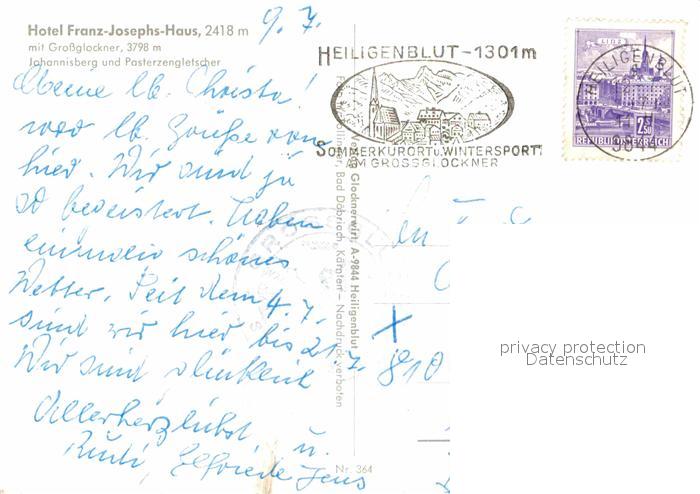 9.7.
Hotel Franz-Josephs-Haus, 2418 m
mit Großglockner, 3798 m
Johannisberg und Pasterzengletscher
Meine lb. Christa!
lb. Grüße von
hier. Wir sind ja
so begeistert. Haben
einmalig schönes
Wetter. Seit dem 4.7.
sind wir hier bis 21.7.
Wir sind glücklich
Allerherzlichst
Rudi, Elfriede u. Jens
HEILIGENBLUT-1301m
SOMMERKURORT U. WINTERSPORT
AM GROSSGLOCKNER
LINZ
2.50
REPUBLIK ÖSTERREICH
HEILIGENBLUT
9844
Verlag Glocknerwirt, A-9844 Heiligenblut
Bad Döbriach, Kärnten – Nachdruck verboten
810
Nr. 364
privacy protection
Datenschutz